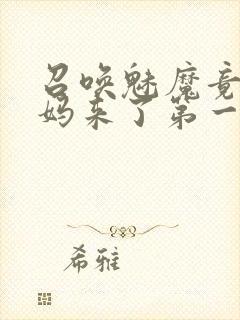 召唤魅魔竟
妈来了第一
希雅